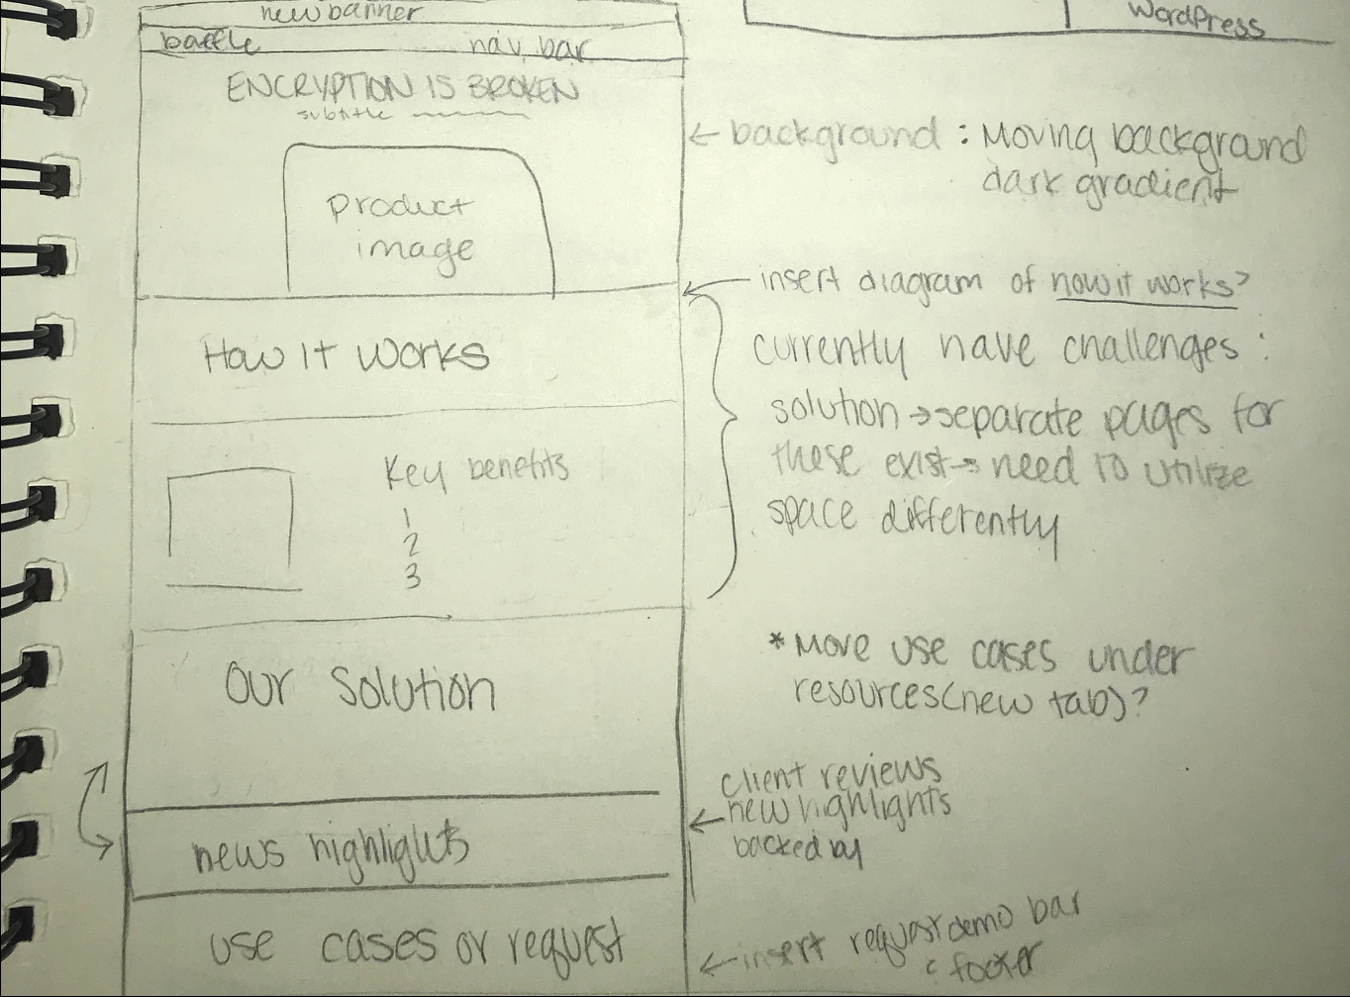 new banner
WordPress
baffle nav bar
ENCRYPTION IS BROKEN
subtitle
← background : Moving background
dark gradient
product
image
← insert diagram of how it works?
How It Works
currently have challenges :
solution → separate pages for
these exist → need to utilize
space differently
Key benefits
1
2
3
* Move use cases under
resources (new tab)?
Our Solution
client reviews
← new highlights
backed by
news highlights
use cases or request
← insert request demo bar
& footer